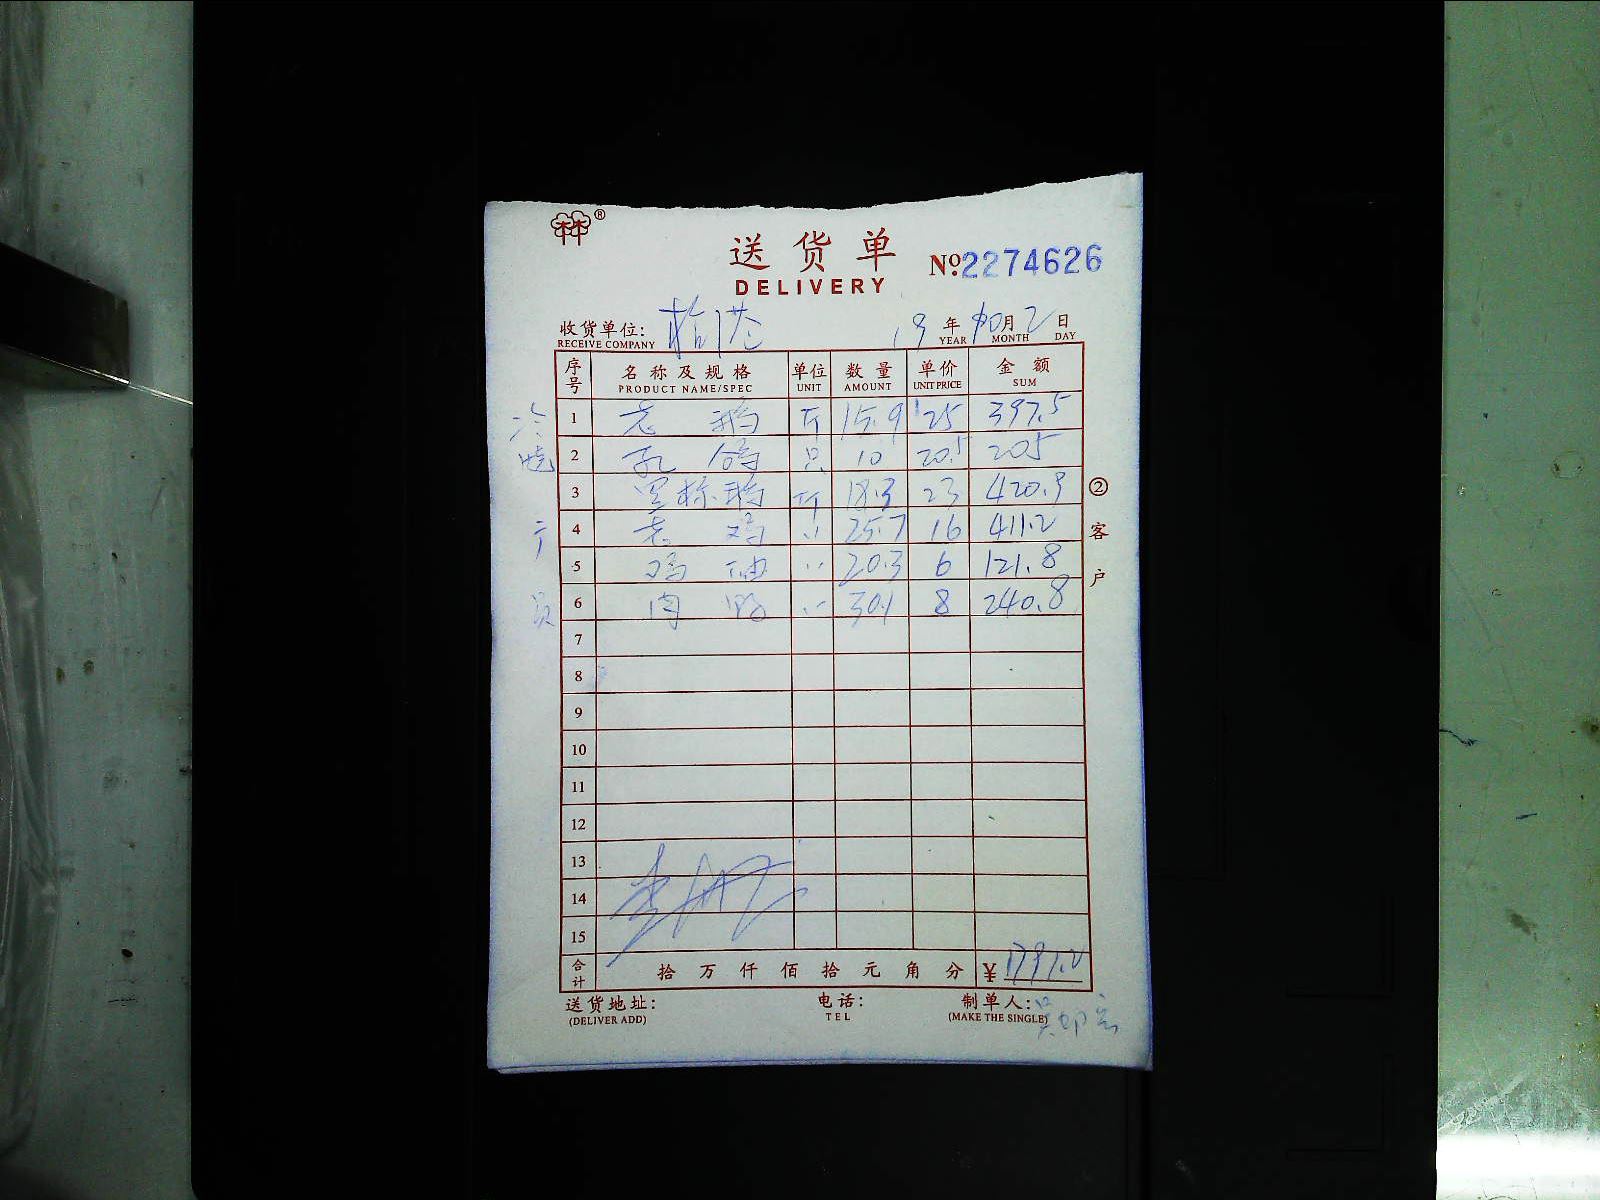 ®
送货单
DELIVERY
№.2274626
收货单位:
RECEIVE COMPANY
19年10月2日
YEAR MONTH DAY
序号 名称及规格 单位 数量 单价 金额
PRODUCT NAME/SPEC UNIT AMOUNT UNIT PRICE SUM
1 老鹅 斤 15.9 25 397.5
2 乳鸽 只 10 20.5 205
3 黑棕鹅 斤 18.3 23 420.9
4 老鸡 〃 25.7 16 411.2
5 鸡油 〃 20.3 6 121.8
6 肉鸭 〃 30.1 8 240.8
7
8
9
10
11
12
13
14
15
合计 拾万仟佰拾元角分 ¥ 1797.2
②客户
送货地址: 电话: 制单人:
(DELIVER ADD) TEL (MAKE THE SINGLE)